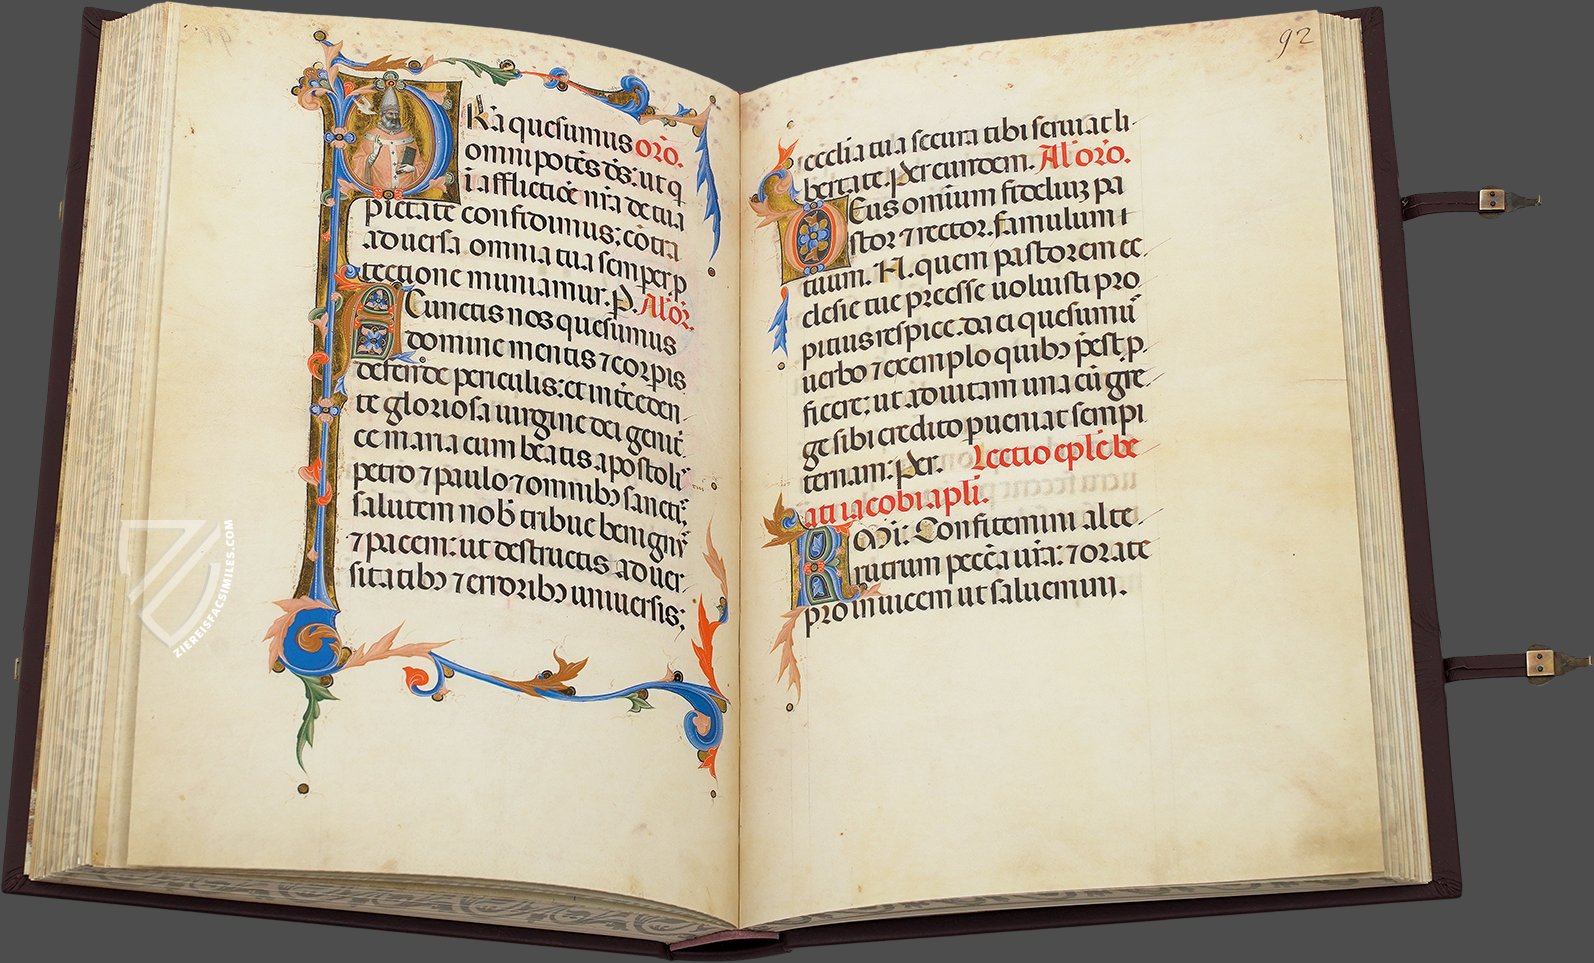 PRa quesumus oro.
omnipotēs dš: ut q
i afflictiōe nr̄a de tua
pietate confidimus; cōtra
aduersa omnia tua semper p
tectione muniamur. P. Al' or̄.
A Cunctis nos quesumus
domine mentis ⁊ corpis
defende periculis: et int̄ceden
te gloriosa uirgine dei genit̄
ce maria cum beatis apostoli
petro ⁊ paulo ⁊ omnibꝫ sancti
salutem nob̄ tribue benigni
⁊ pacem: ut destructis aduer
sitatibꝫ ⁊ erroribꝫ uniuersis;
92
ecclia tua secura tibi seruiat li
bertate. Per eundem. Al' oro.
DEus omium fideliuꝫ pa
stor ⁊ rector. famulum t
uum. N. quem pastorem ec
clesie tue preesse uoluisti pro
pitius respice. da ei quesumꝰ
uerbo ⁊ exemplo quibꝫ p̄est p
ficere: ut ad uitam una cū gre
ge sibi credito pueniat sempi
ternam. Per. Lectio epl̄e be
ati iacobi apl̄i.
FRMī: Confitemini alte
rutrum pecc̄a ur̄a: ⁊ orate
pro inuicem ut saluemini.
ZIEREISFACSIMILES.COM